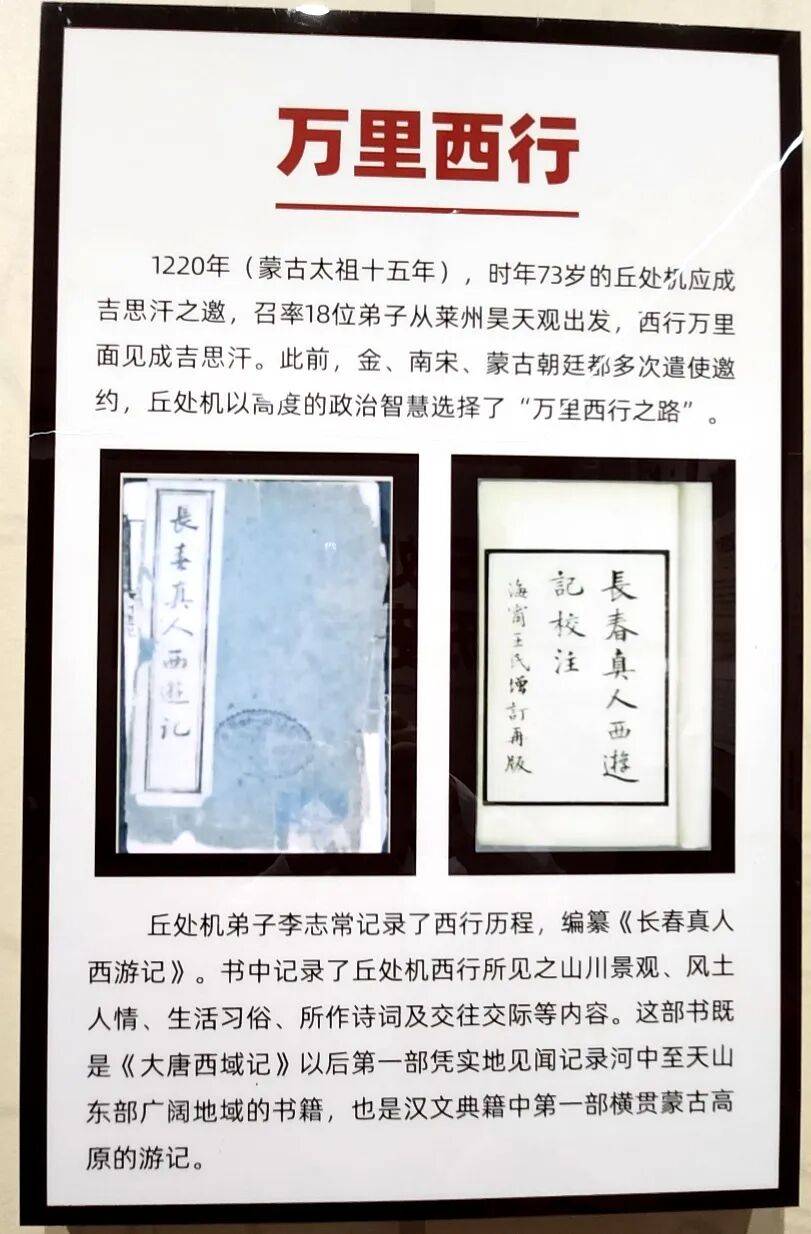 万里西行
1220年（蒙古太祖十五年），时年73岁的丘处机应成
吉思汗之邀，召率18位弟子从莱州昊天观出发，西行万里
面见成吉思汗。此前，金、南宋、蒙古朝廷都多次遣使邀
约，丘处机以高度的政治智慧选择了“万里西行之路”。
長春真人西遊记
長春真人西遊
記校注
海甯王氏增訂再版
丘处机弟子李志常记录了西行历程，编纂《长春真人
西游记》。书中记录了丘处机西行所见之山川景观、风土
人情、生活习俗、所作诗词及交往交际等内容。这部书既
是《大唐西域记》以后第一部凭实地见闻记录河中至天山
东部广阔地域的书籍，也是汉文典籍中第一部横贯蒙古高
原的游记。